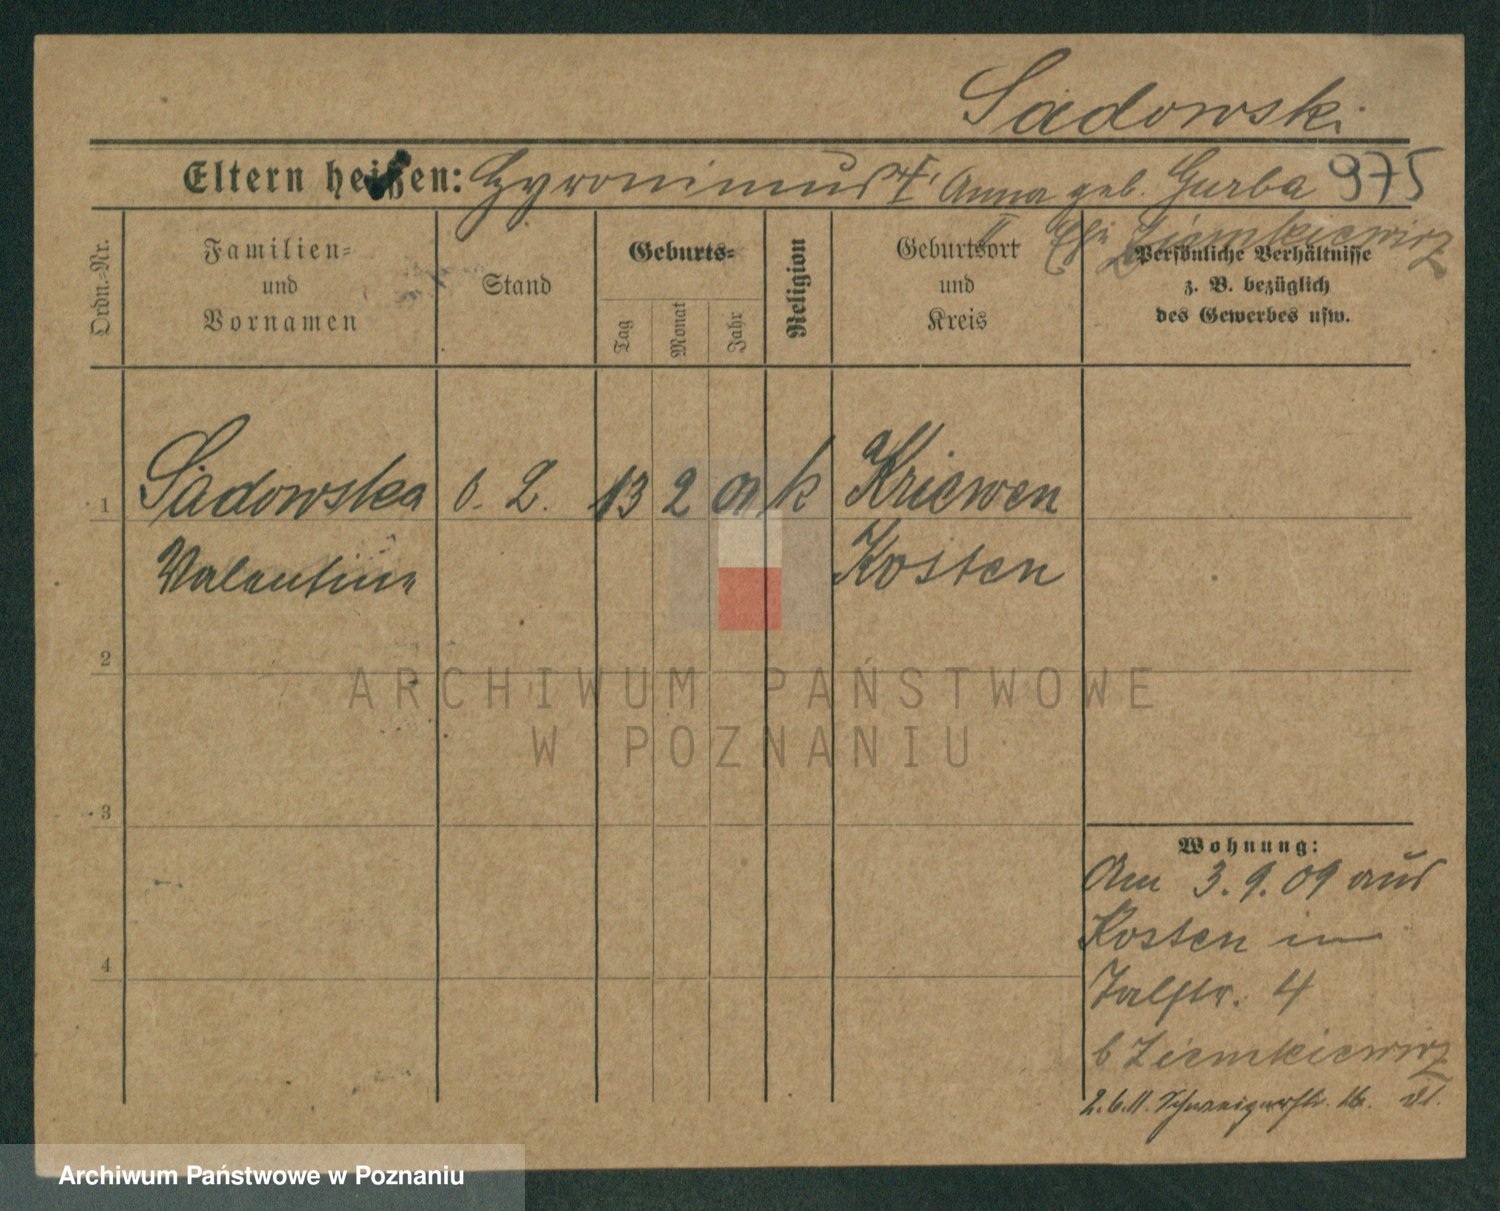 Sadowski
Eltern heißen: Hyronimus I, Anna geb. Gurba 975
II Ehe Ziemkiewicz
Ordn.-Nr.
Familien-
und
Vornamen
Stand
Geburts-
Tag
Monat
Jahr
Religion
Geburtsort
und
Kreis
Persönliche Verhältnisse
z. B. bezüglich
des Gewerbes usw.
1 Sadowska o. 2. 13 2 01 k Kriewen
Valentine Kosten
2
3
4
Wohnung:
Am 3.9.09 aus
Kosten in
Talstr. 4
b Ziemkiewicz
2.6.11. 16.
ARCHIWUM PAŃSTWOWE
W POZNANIU
Archiwum Państwowe w Poznaniu